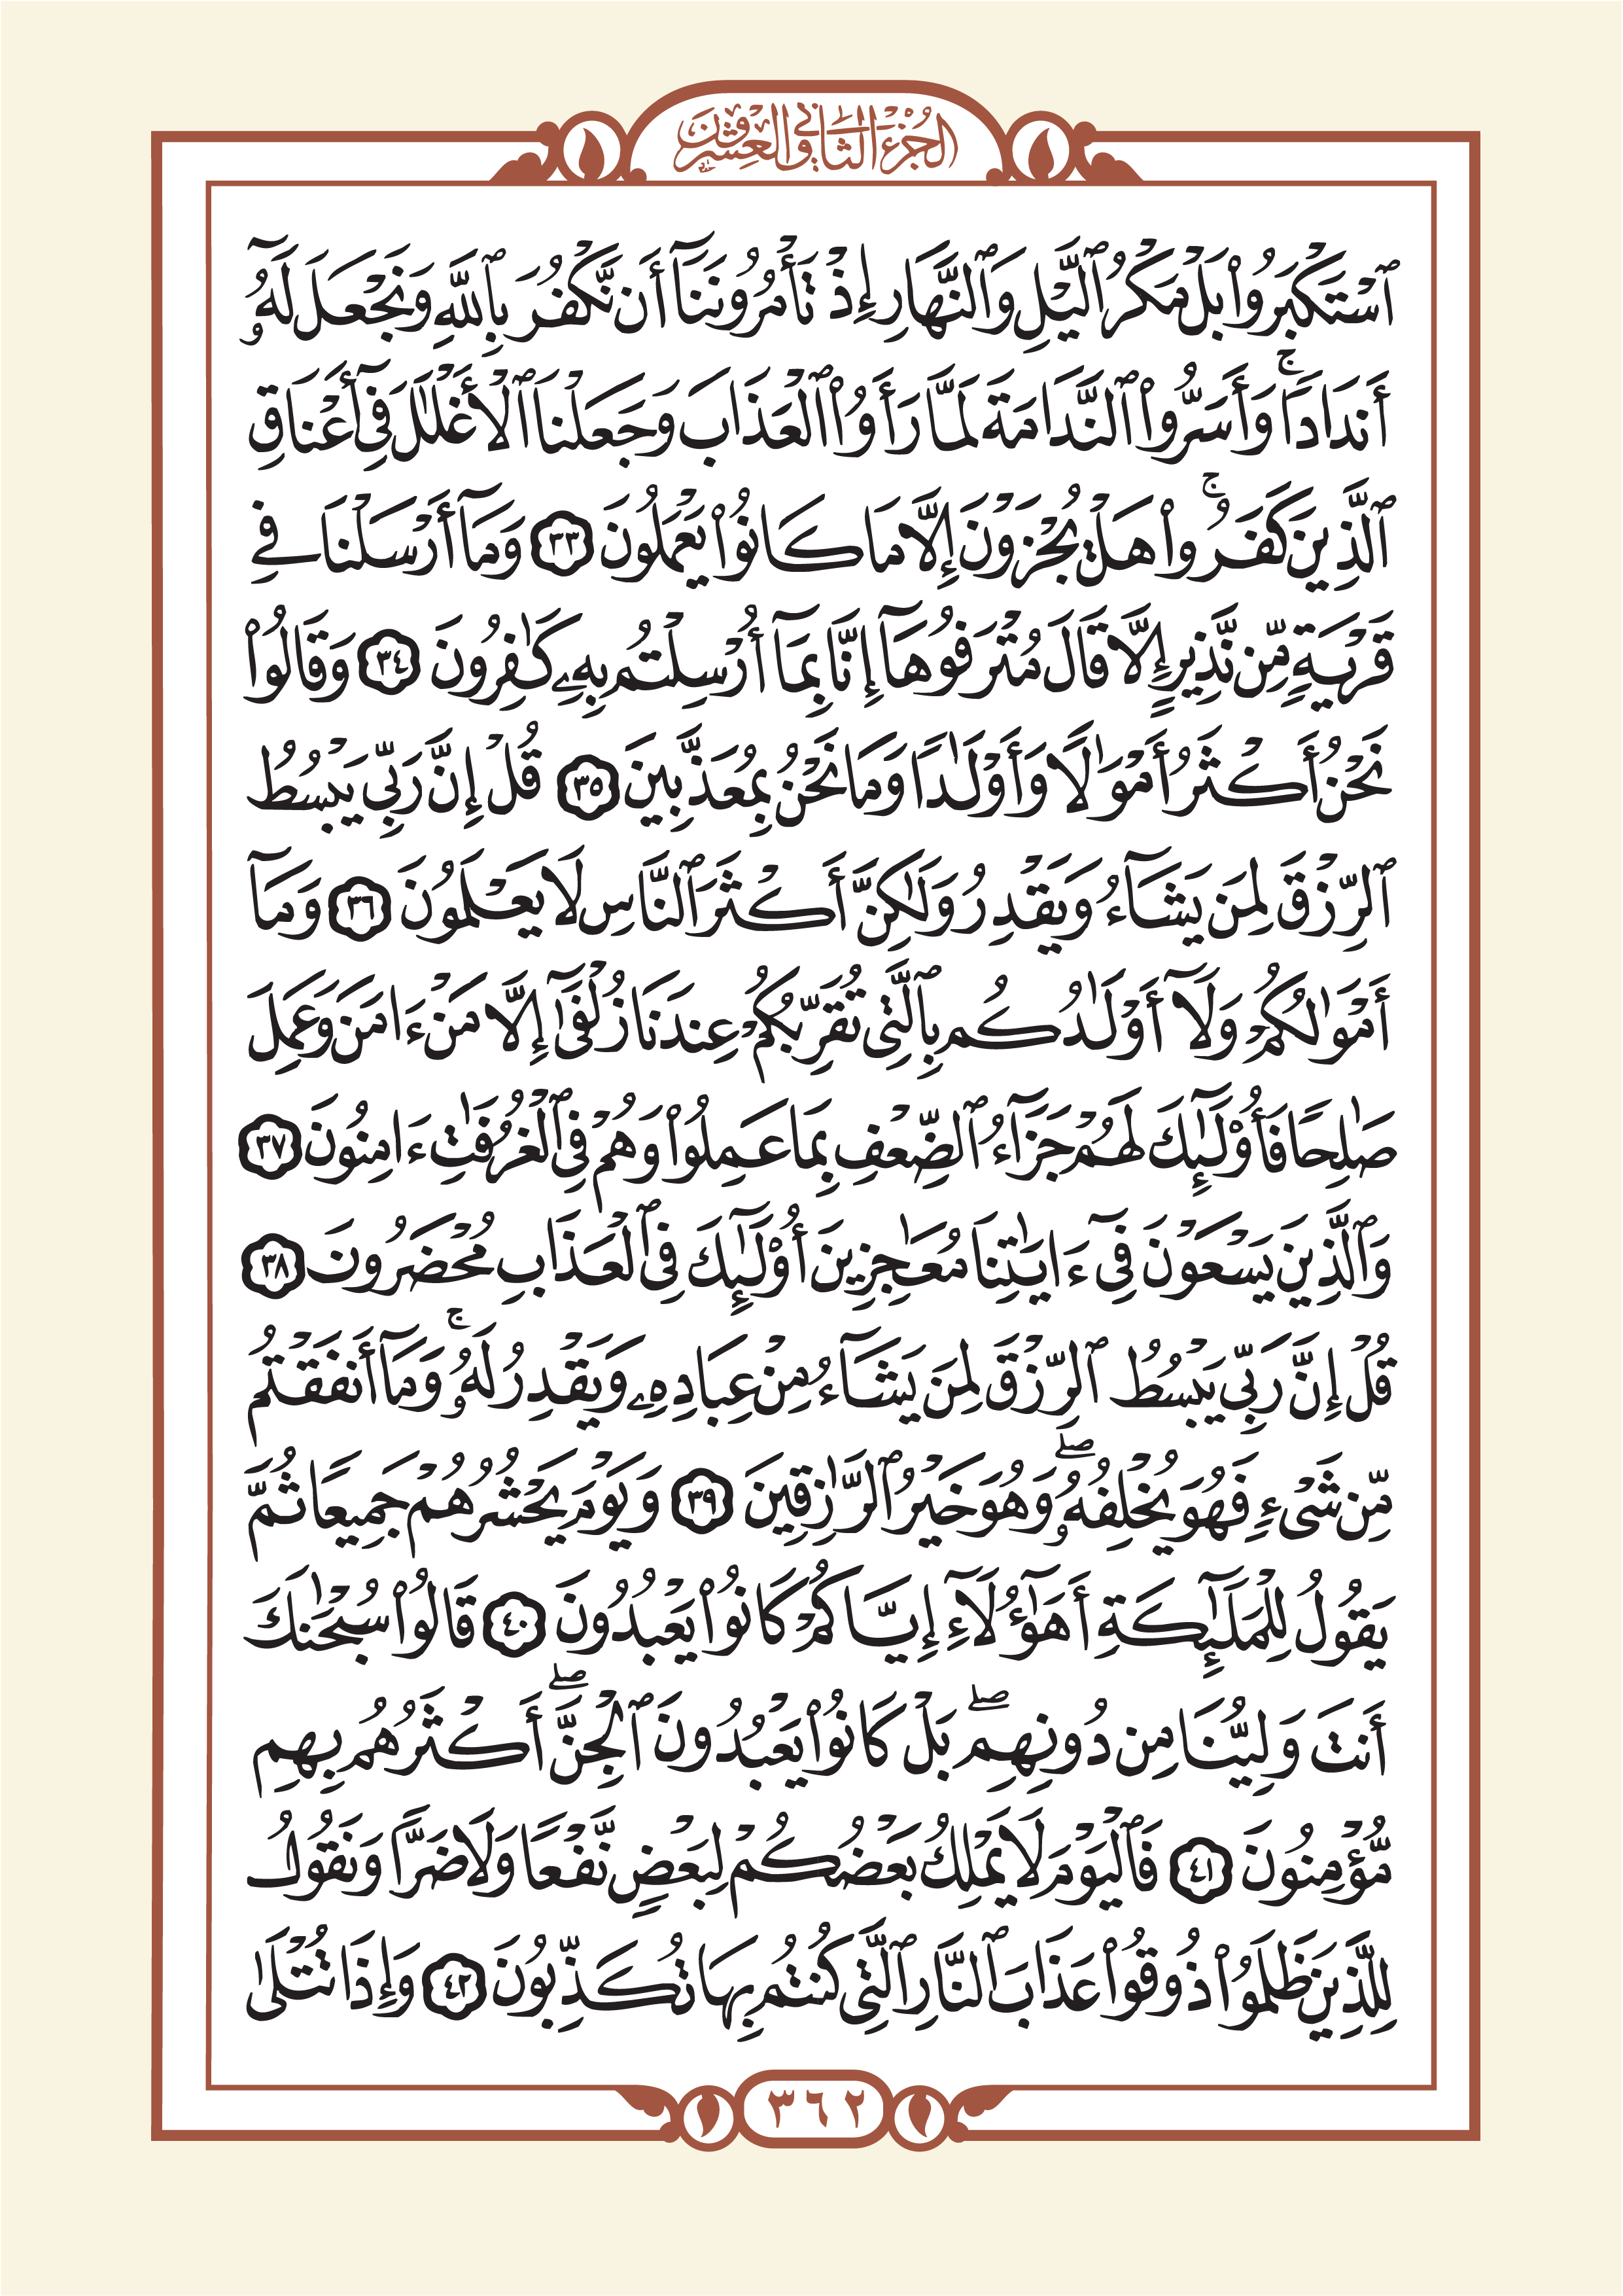 الجزء الثاني والعشرون
ٱسۡتَكۡبَرُواْ بَلۡ مَكۡرُ ٱلَّيۡلِ وَٱلنَّهَارِ إِذۡ تَأۡمُرُونَنَآ أَن نَّكۡفُرَ بِٱللَّهِ وَنَجۡعَلَ لَهُۥٓ
أَندَادٗاۚ وَأَسَرُّواْ ٱلنَّدَامَةَ لَمَّا رَأَوُاْ ٱلۡعَذَابَ وَجَعَلۡنَا ٱلۡأَغۡلَٰلَ فِيٓ أَعۡنَاقِ
ٱلَّذِينَ كَفَرُواْۚ هَلۡ يُجۡزَوۡنَ إِلَّا مَا كَانُواْ يَعۡمَلُونَ ٣٣ وَمَآ أَرۡسَلۡنَا فِي
قَرۡيَةٖ مِّن نَّذِيرٍ إِلَّا قَالَ مُتۡرَفُوهَآ إِنَّا بِمَآ أُرۡسِلۡتُم بِهِۦ كَٰفِرُونَ ٣٤ وَقَالُواْ
نَحۡنُ أَكۡثَرُ أَمۡوَٰلٗا وَأَوۡلَٰدٗا وَمَا نَحۡنُ بِمُعَذَّبِينَ ٣٥ قُلۡ إِنَّ رَبِّي يَبۡسُطُ
ٱلرِّزۡقَ لِمَن يَشَآءُ وَيَقۡدِرُ وَلَٰكِنَّ أَكۡثَرَ ٱلنَّاسِ لَا يَعۡلَمُونَ ٣٦ وَمَآ
أَمۡوَٰلُكُمۡ وَلَآ أَوۡلَٰدُكُم بِٱلَّتِي تُقَرِّبُكُمۡ عِندَنَا زُلۡفَىٰٓ إِلَّا مَنۡ ءَامَنَ وَعَمِلَ
صَٰلِحٗا فَأُوْلَٰٓئِكَ لَهُمۡ جَزَآءُ ٱلضِّعۡفِ بِمَا عَمِلُواْ وَهُمۡ فِي ٱلۡغُرُفَٰتِ ءَامِنُونَ ٣٧
وَٱلَّذِينَ يَسۡعَوۡنَ فِيٓ ءَايَٰتِنَا مُعَٰجِزِينَ أُوْلَٰٓئِكَ فِي ٱلۡعَذَابِ مُحۡضَرُونَ ٣٨
قُلۡ إِنَّ رَبِّي يَبۡسُطُ ٱلرِّزۡقَ لِمَن يَشَآءُ مِنۡ عِبَادِهِۦ وَيَقۡدِرُ لَهُۥۚ وَمَآ أَنفَقۡتُم
مِّن شَيۡءٖ فَهُوَ يُخۡلِفُهُۥۖ وَهُوَ خَيۡرُ ٱلرَّٰزِقِينَ ٣٩ وَيَوۡمَ يَحۡشُرُهُمۡ جَمِيعٗا ثُمَّ
يَقُولُ لِلۡمَلَٰٓئِكَةِ أَهَٰٓؤُلَآءِ إِيَّاكُمۡ كَانُواْ يَعۡبُدُونَ ٤٠ قَالُواْ سُبۡحَٰنَكَ
أَنتَ وَلِيُّنَا مِن دُونِهِمۖ بَلۡ كَانُواْ يَعۡبُدُونَ ٱلۡجِنَّۖ أَكۡثَرُهُم بِهِم
مُّؤۡمِنُونَ ٤١ فَٱلۡيَوۡمَ لَا يَمۡلِكُ بَعۡضُكُمۡ لِبَعۡضٖ نَّفۡعٗا وَلَا ضَرّٗا وَنَقُولُ
لِلَّذِينَ ظَلَمُواْ ذُوقُواْ عَذَابَ ٱلنَّارِ ٱلَّتِي كُنتُم بِهَا تُكَذِّبُونَ ٤٢ وَإِذَا تُتۡلَىٰ
٣٦٢